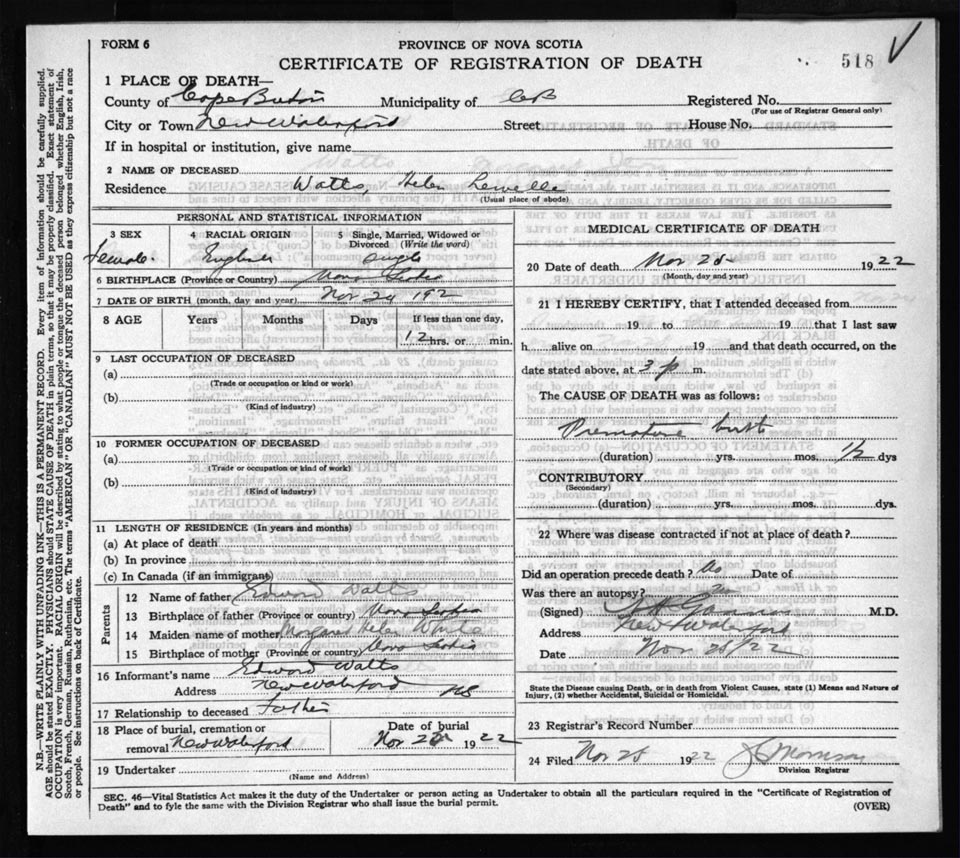 FORM 6
PROVINCE OF NOVA SCOTIA
CERTIFICATE OF REGISTRATION OF DEATH
518
1 PLACE OF DEATH—
County of Cape Breton Municipality of CB Registered No.
(For use of Registrar General only)
City or Town New Waterford Street House No.
If in hospital or institution, give name
2 NAME OF DECEASED
Residence Watts, Helen
(Usual place of abode)
PERSONAL AND STATISTICAL INFORMATION
3 SEX
Female
4 RACIAL ORIGIN
English
5 Single, Married, Widowed or Divorced (Write the word)
Single
6 BIRTHPLACE (Province or Country) Nova Scotia
7 DATE OF BIRTH (month, day and year) Nov 24 192
8 AGE Years Months Days If less than one day,
12 hrs. or min.
9 LAST OCCUPATION OF DECEASED
(a)
(Trade or occupation or kind or work)
(b)
(Kind of industry)
10 FORMER OCCUPATION OF DECEASED
(a)
(Trade or occupation or kind of work)
(b)
(Kind of industry)
11 LENGTH OF RESIDENCE (In years and months)
(a) At place of death
(b) In province
(c) In Canada (if an immigrant)
Parents
12 Name of father Edward Watts
13 Birthplace of father (Province or country) Nova Scotia
14 Maiden name of mother Margaret Helen White
15 Birthplace of mother (Province or country) Nova Scotia
16 Informant's name Edward Watts
Address New Waterford NS
17 Relationship to deceased Father
18 Place of burial, cremation or removal New Waterford
Date of burial
Nov 1922
19 Undertaker
(Name and Address)
MEDICAL CERTIFICATE OF DEATH
20 Date of death Nov 25 1922
(Month, day and year)
21 I HEREBY CERTIFY, that I attended deceased from
19 to 19 that I last saw
h alive on 19 and that death occurred, on the
date stated above, at 3 p m.
The CAUSE OF DEATH was as follows:
Premature birth
(duration) yrs. mos. 1/2 dys
CONTRIBUTORY
(Secondary)
(duration) yrs. mos. dys.
22 Where was disease contracted if not at place of death?
Did an operation precede death? No Date of
Was there an autopsy? no
(Signed) M.D.
Address New Waterford
Date Nov 25/22
State the Disease causing Death, or in death from Violent Causes, state (1) Means and Nature of
Injury, (2) whether Accidental, Suicidal or Homicidal.
23 Registrar's Record Number
24 Filed Nov 25 1922 Morrison
Division Registrar
SEC. 46—Vital Statistics Act makes it the duty of the Undertaker or person acting as Undertaker to obtain all the particulars required in the "Certificate of Registration of
Death" and to fyle the same with the Division Registrar who shall issue the burial permit.
(OVER)
N.B.—WRITE PLAINLY WITH UNFADING INK—THIS IS A PERMANENT RECORD. Every item of information should be carefully supplied.
AGE should be stated EXACTLY. PHYSICIANS should STATE CAUSE OF DEATH in plain terms, so that it may be properly classified. Exact statement of
OCCUPATION is very important. RACIAL ORIGIN will be described by stating to what people or tongue the deceased person belonged whether English, Irish,
Scotch, French, German, Russian, Ruthenian, etc. The terms "AMERICAN" OR "CANADIAN" MUST NOT BE USED as they express citizenship but not a race
or people. See instructions on back of Certificate.